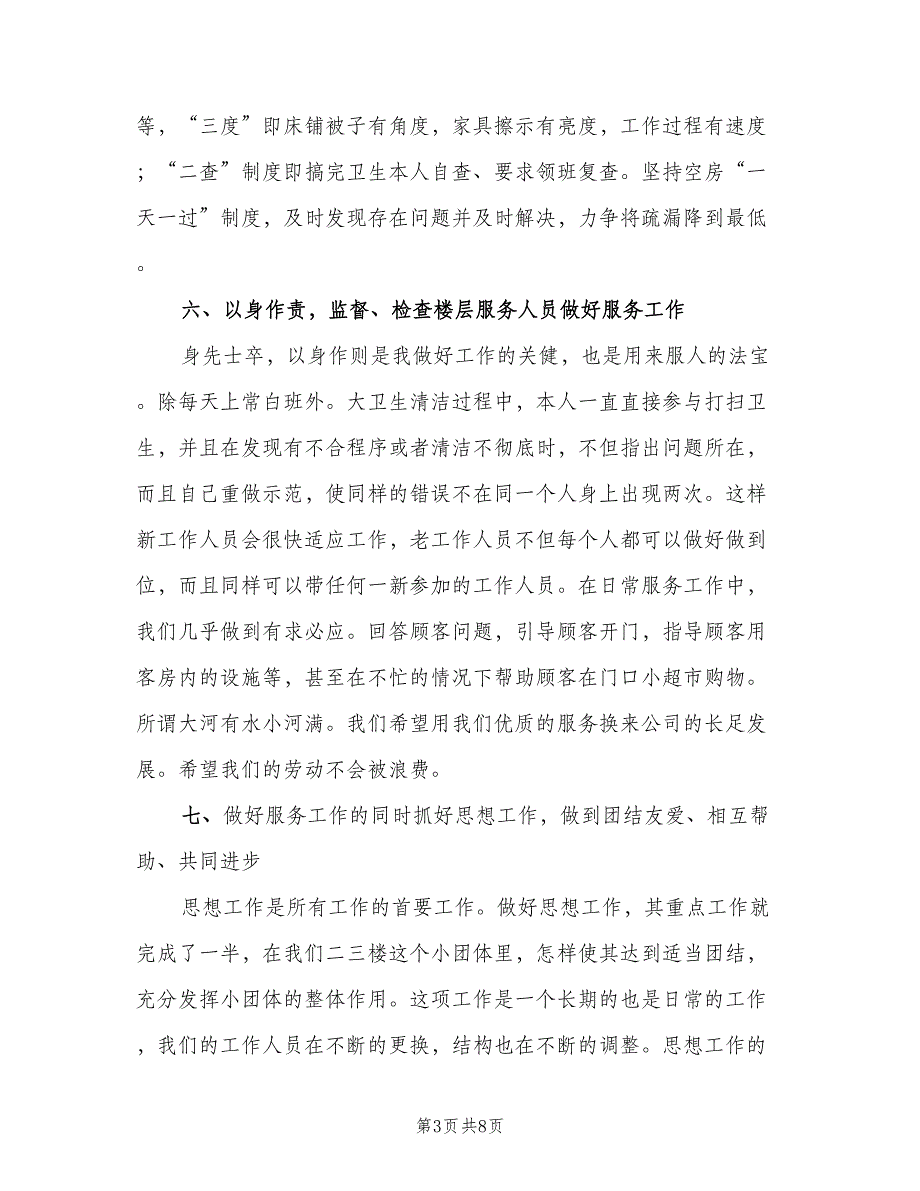 等，“三度”即床铺被子有角度，家具擦示有亮度，工作过程有速度
；“二查”制度即搞完卫生本人自查、要求领班复查。坚持空房“一
天一过”制度，及时发现存在问题并及时解决，力争将疏漏降到最低
。
六、以身作责，监督、检查楼层服务人员做好服务工作
身先士卒，以身作则是我做好工作的关健，也是用来服人的法宝
。除每天上常白班外。大卫生清洁过程中，本人一直直接参与打扫卫
生，并且在发现有不合程序或者清洁不彻底时，不但指出问题所在，
而且自己重做示范，使同样的错误不在同一个人身上出现两次。这样
新工作人员会很快适应工作，老工作人员不但每个人都可以做好做到
位，而且同样可以带任何一新参加的工作人员。在日常服务工作中，
我们几乎做到有求必应。回答顾客问题，引导顾客开门，指导顾客用
客房内的设施等，甚至在不忙的情况下帮助顾客在门口小超市购物。
所谓大河有水小河满。我们希望用我们优质的服务换来公司的长足发
展。希望我们的劳动不会被浪费。
七、做好服务工作的同时抓好思想工作，做到团结友爱、相互帮
助、共同进步
思想工作是所有工作的首要工作。做好思想工作，其重点工作就
完成了一半，在我们二三楼这个小团体里，怎样使其达到适当团结，
充分发挥小团体的整体作用。这项工作是一个长期的也是日常的工作
，我们的工作人员在不断的更换，结构也在不断的调整。思想工作的
第3页 共8页